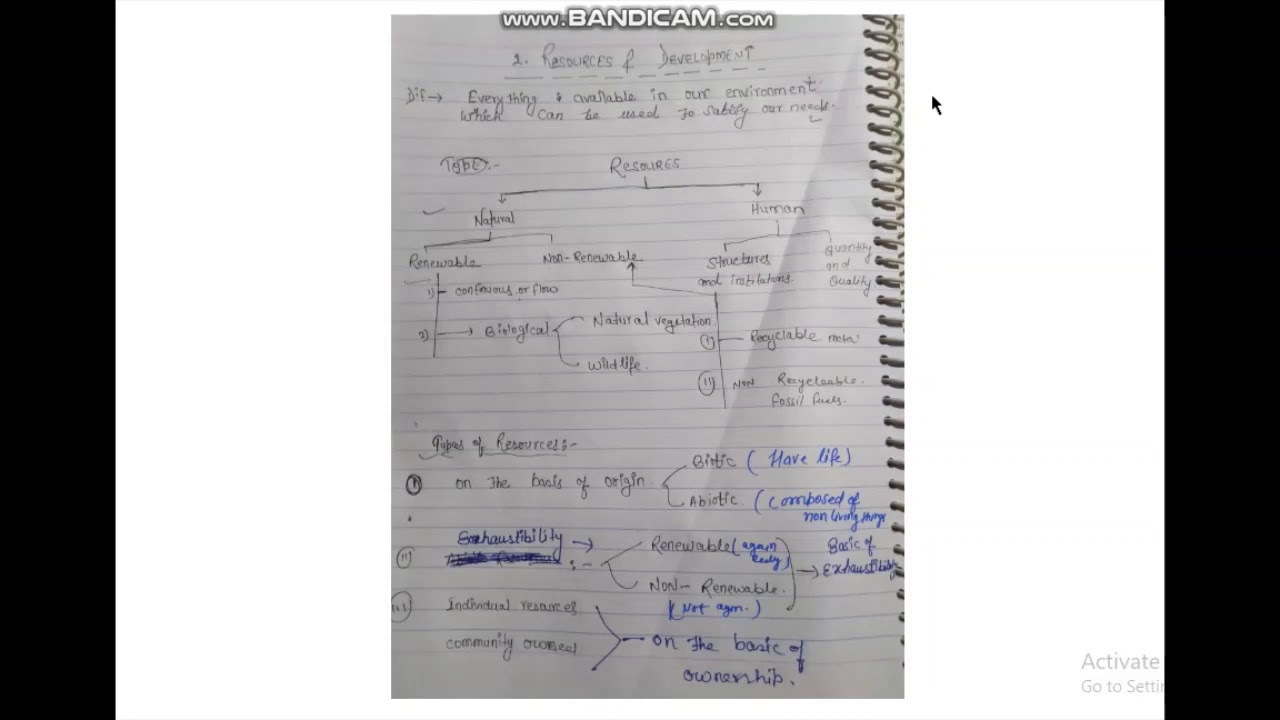 WWW.BANDICAM.COM
2. RESOURCES & DEVELOPMENT
Dif → Everything is available in our environment
which can be used to satisfy our needs.
Types:-
RESOURES
Natural
Human
Renewable
Non-Renewable
Structures
and institutions.
Quantity
and
Quality
1) continuous or flow
2) → Biological
Natural vegetation
Wildlife.
(I) Recyclable metal
(II) NON Recyclable.
fossil fuels.
Types of Resources:-
(I) on the basis of origin.
Biotic (Have life)
Abiotic (composed of
non living things
(II) Exhaustibility → :-
Renewable (again
NON-Renewable.
(Not agn.)
→ Basic of
Exhaustibility
(III) Individual resources
community owned
on the basic of
ownership.
Activate
Go to Settin